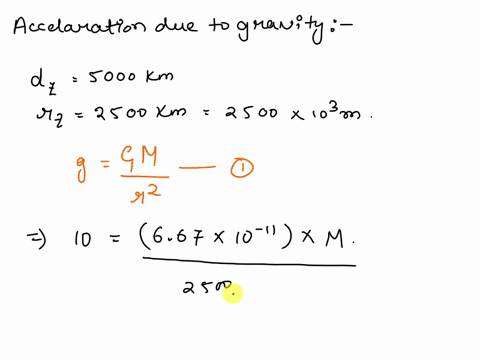 Accelaration due to gravity:-
d_z = 5000 Km
r_z = 2500 Km = 2500 × 10³ m.
g = GM / r² — ①
⇒ 10 = (6.67 × 10⁻¹¹) × M.
2500